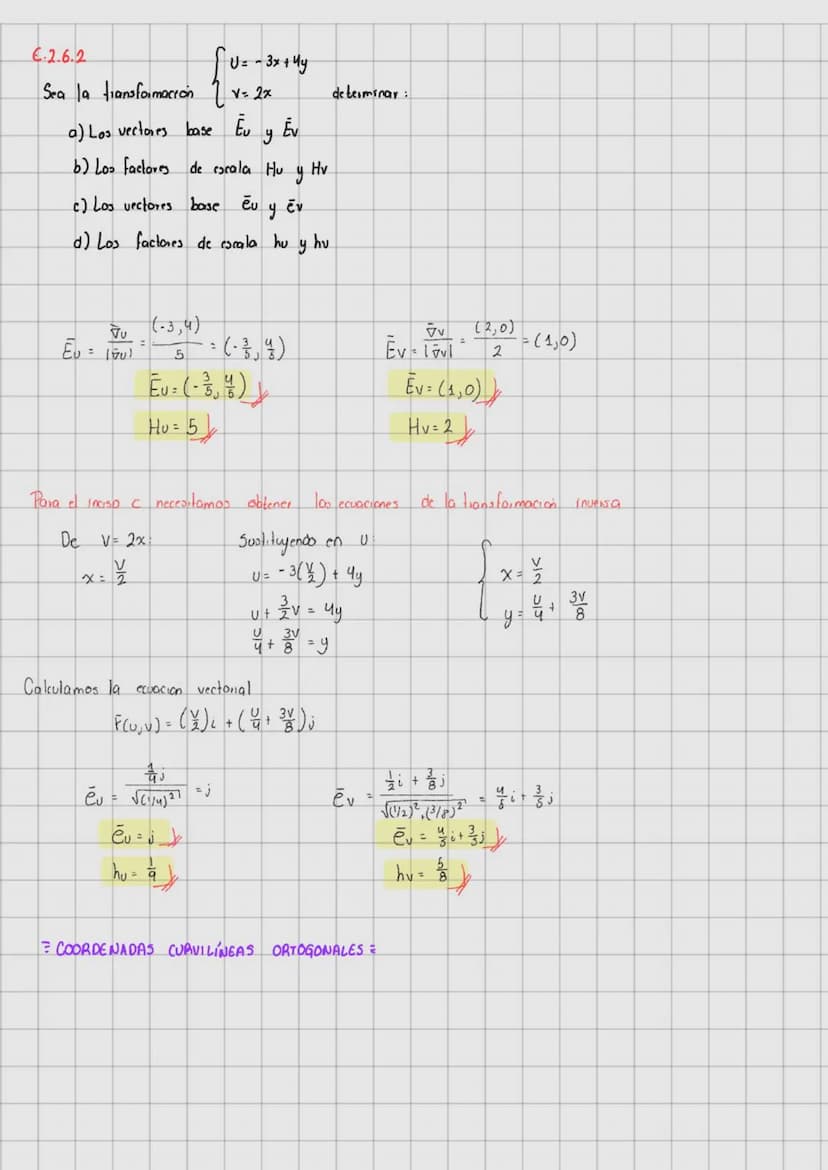 E.2.6.2
Sea la transformación { U = -3x + 4y
V = 2x determinar:
a) Los vectores base Ēu y Ēv
b) Los factores de escala Hu y Hv
c) Los vectores base ēu y ēv
d) Los factores de escala hu y hv
Ēu = ∇̄u / |∇̄u| = (-3,4) / 5 = (-3/5, 4/5)
Ēv = ∇̄v / |∇̄v| = (2,0) / 2 = (1,0)
Ēu = (-3/5, 4/5)
Ēv = (1,0)
Hu = 5
Hv = 2
Para el inciso c necesitamos obtener las ecuaciones de la transformación inversa
De V = 2x:
x = V/2
Sustituyendo en U:
U = -3(V/2) + 4y
U + 3/2 V = 4y
U/4 + 3V/8 = y
{ x = V/2
y = U/4 + 3V/8
Calculamos la ecuacion vectorial
r̄(u,v) = (V/2)i + (U/4 + 3V/8)j
ēu = 1/4 j / √(1/4)² = j
ēv = 1/2 i + 3/8 j / √(1/2)²+(3/8)² = 4/5 i + 3/5 j
ēu = j
ēv = 4/5 i + 3/5 j
hu = 1/4
hv = 5/8
= COORDENADAS CURVILÍNEAS ORTOGONALES =